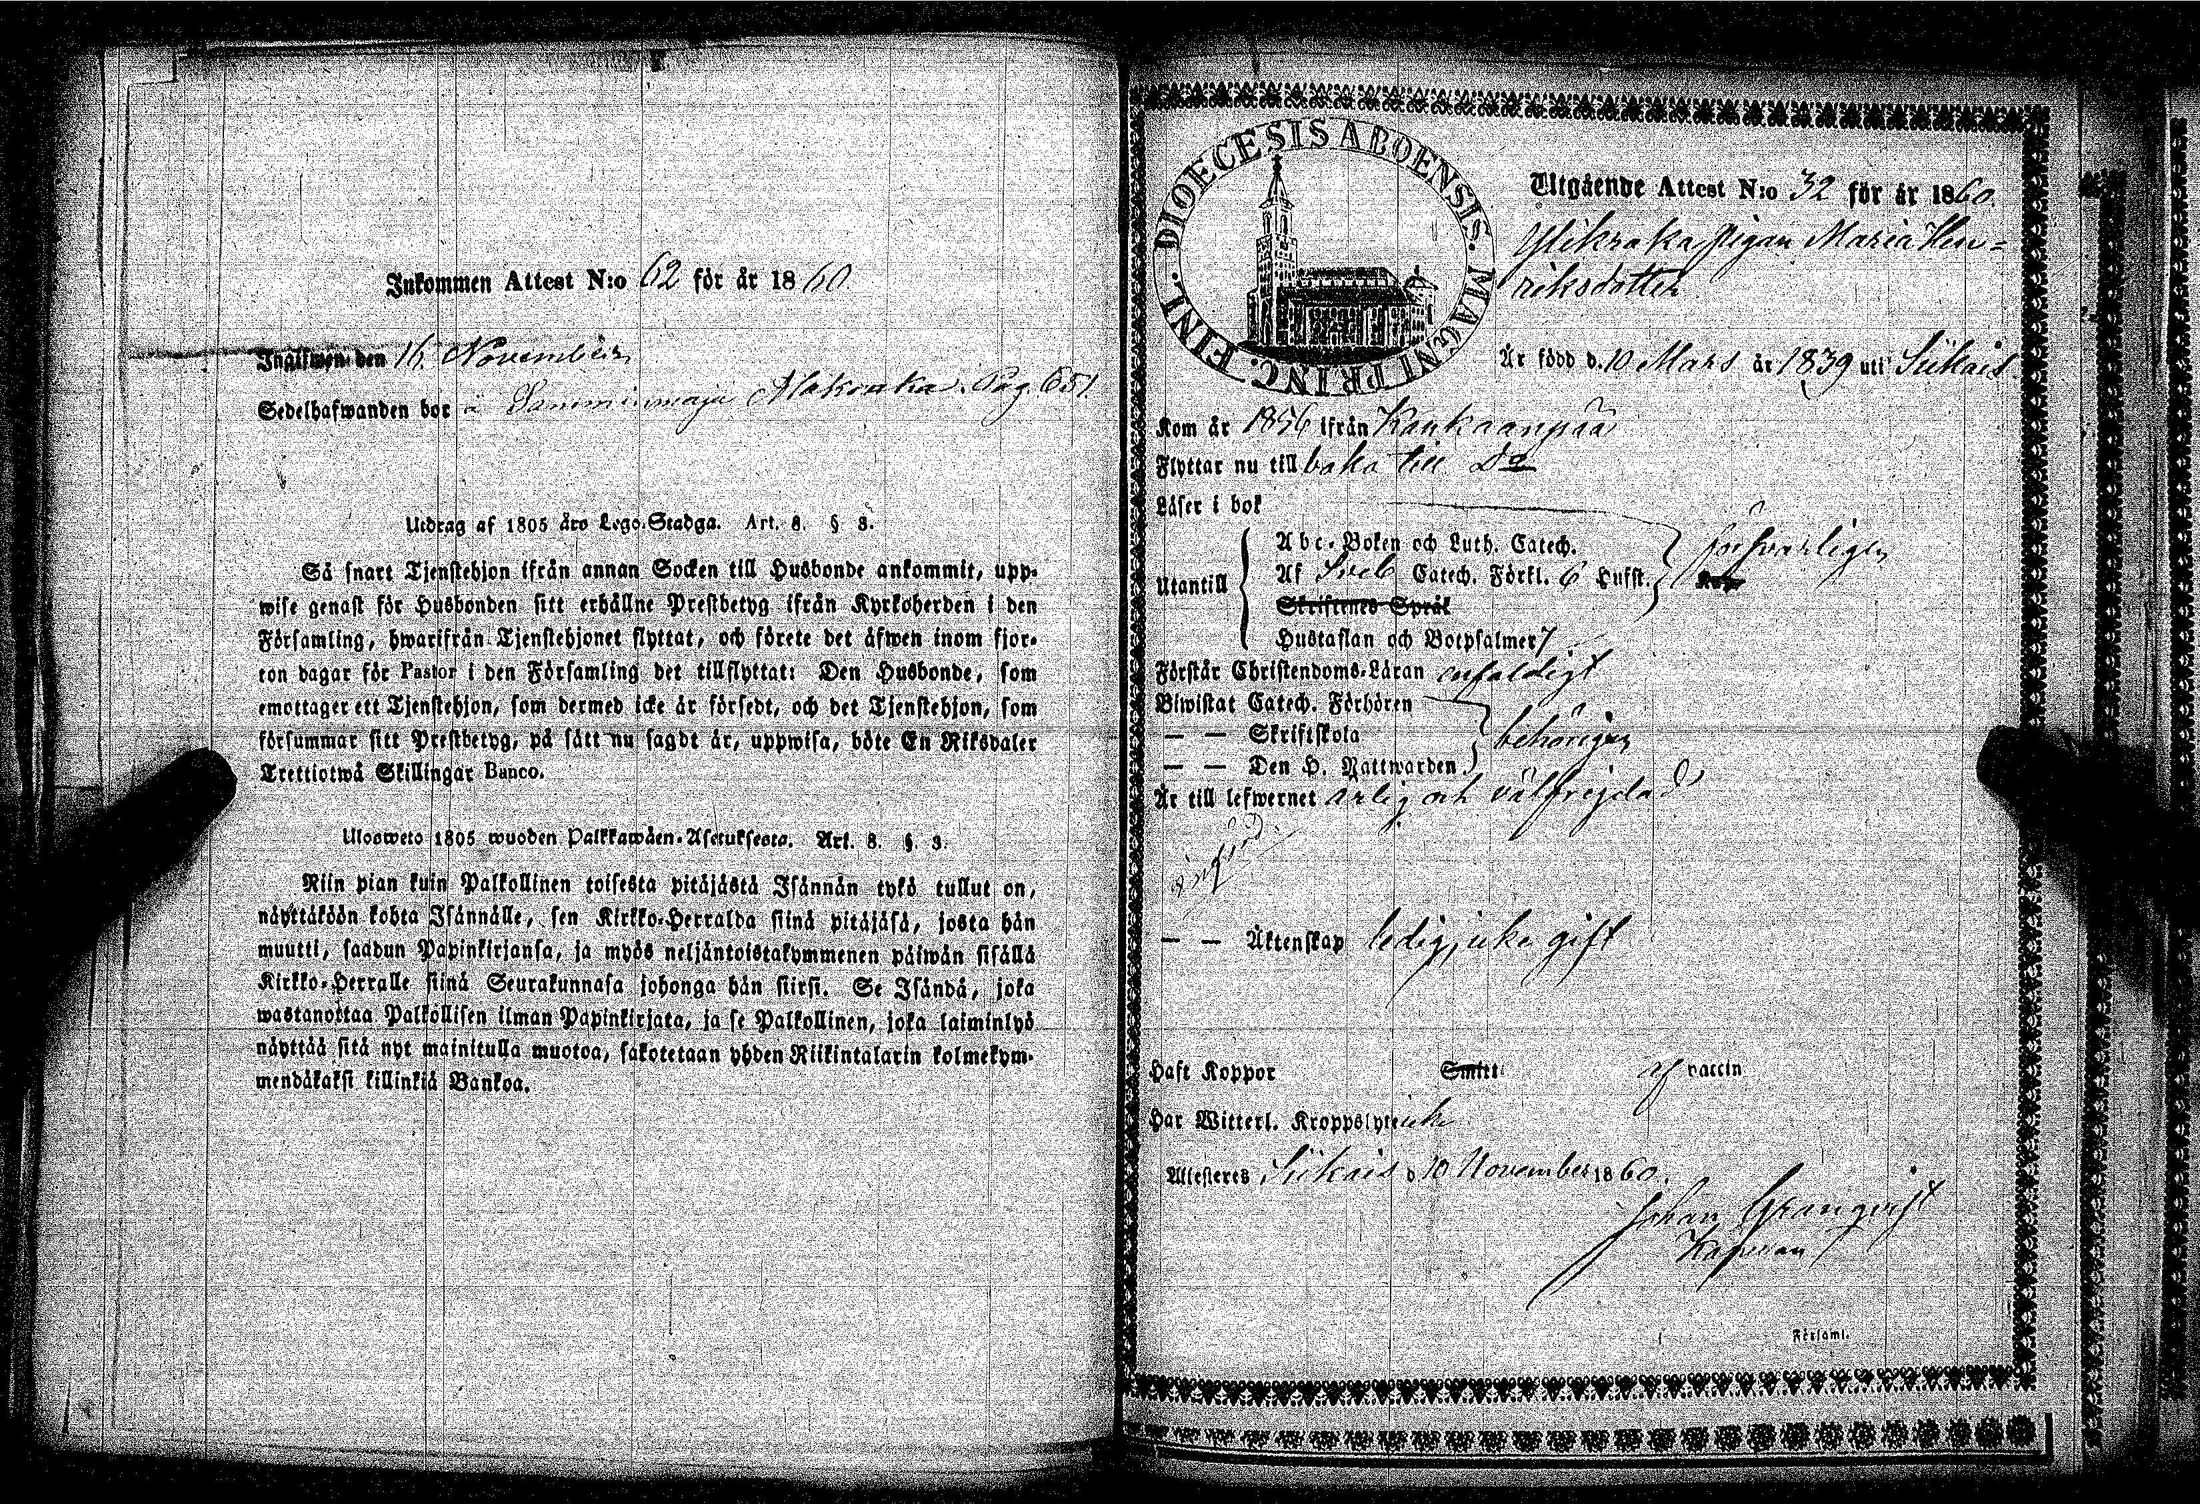 Inkommen Attest N:o 62 för år 1860
Ingifwen den 16 November
Sedelhafwanden bor å Pag. 651
Utdrag af 1805 års Lego-Stadga. Art. 8. § 3.
Så snart Tjenstehjon ifrån annan Socken till Husbonde ankommit, upp-
wise genast för Husbonden sitt erhållne Prestbetyg ifrån Kyrkoherden i den
Församling, hwarifrån Tjenstehjonet flyttat, och förete det äfwen inom fjor-
ton dagar för Pastor i den Församling det tillflyttat: Den Husbonde, som
emottager ett Tjenstehjon, som dermed icke är försedt, och det Tjenstehjon, som
försummar sitt Prestbetyg, på sätt nu sagdt är, uppwisa, böte En Riksdaler
Trettiotwå Skillingar Banco.
Ulosweto 1805 wuoden Palkkawäen-Asetuksesta. Art. 8. §. 3.
Niin pian kuin Palkollinen toisesta pitäjästä Isännän tykö tullut on,
näyttäköön kohta Isännälle, sen Kirkko-Herralda siinä pitäjäsä, josta hän
muutti, saadun Papinkirjansa, ja myös neljäntoistakymmenen päiwän sisällä
Kirkko-Herralle siinä Seurakunnasa johonga hän siirsi. Se Isändä, joka
wastanottaa Palkollisen ilman Papinkirjata, ja se Palkollinen, joka laiminlyö
näyttää sitä nyt mainitulla muotoa, sakotetaan yhden Riikintalarin kolmekym-
mendäkaksi killinkiä Bankoa.
DIOECESIS ABOENSIS. MAGNI PRINC. FINL.
Utgående Attest N:o 32 för år 1860.
Ylikraka Pigan Maria Hen=
riksdotter
Är född d. 10 Mars år 1839 uti Siikais
Kom år 1856 ifrån Kankaanpää
Flyttar nu till baka till Do
Läser i bok
Abc-Boken och Luth. Catech. försvarligen
Utantill Af Sveb Catech. Förkl. 6 Hufst.
Skriftenes Språk
Hustaflan och Botpsalmer 7
Förstår Christendoms-Läran enfaldigt
Biwistat Catech. Förhören
— — Skriftskola behörigen
— — Den H. Nattwarden
Är till lefwernet ärlig och välfrejdad
— — Äktenskap ledig, icke gift
Haft Koppor Smitt af vaccin
Har Witterl. Kroppslyte icke
Attesteras Siikais d 10 November 1860.
Johan Granqvist
Kapellan
Församl.